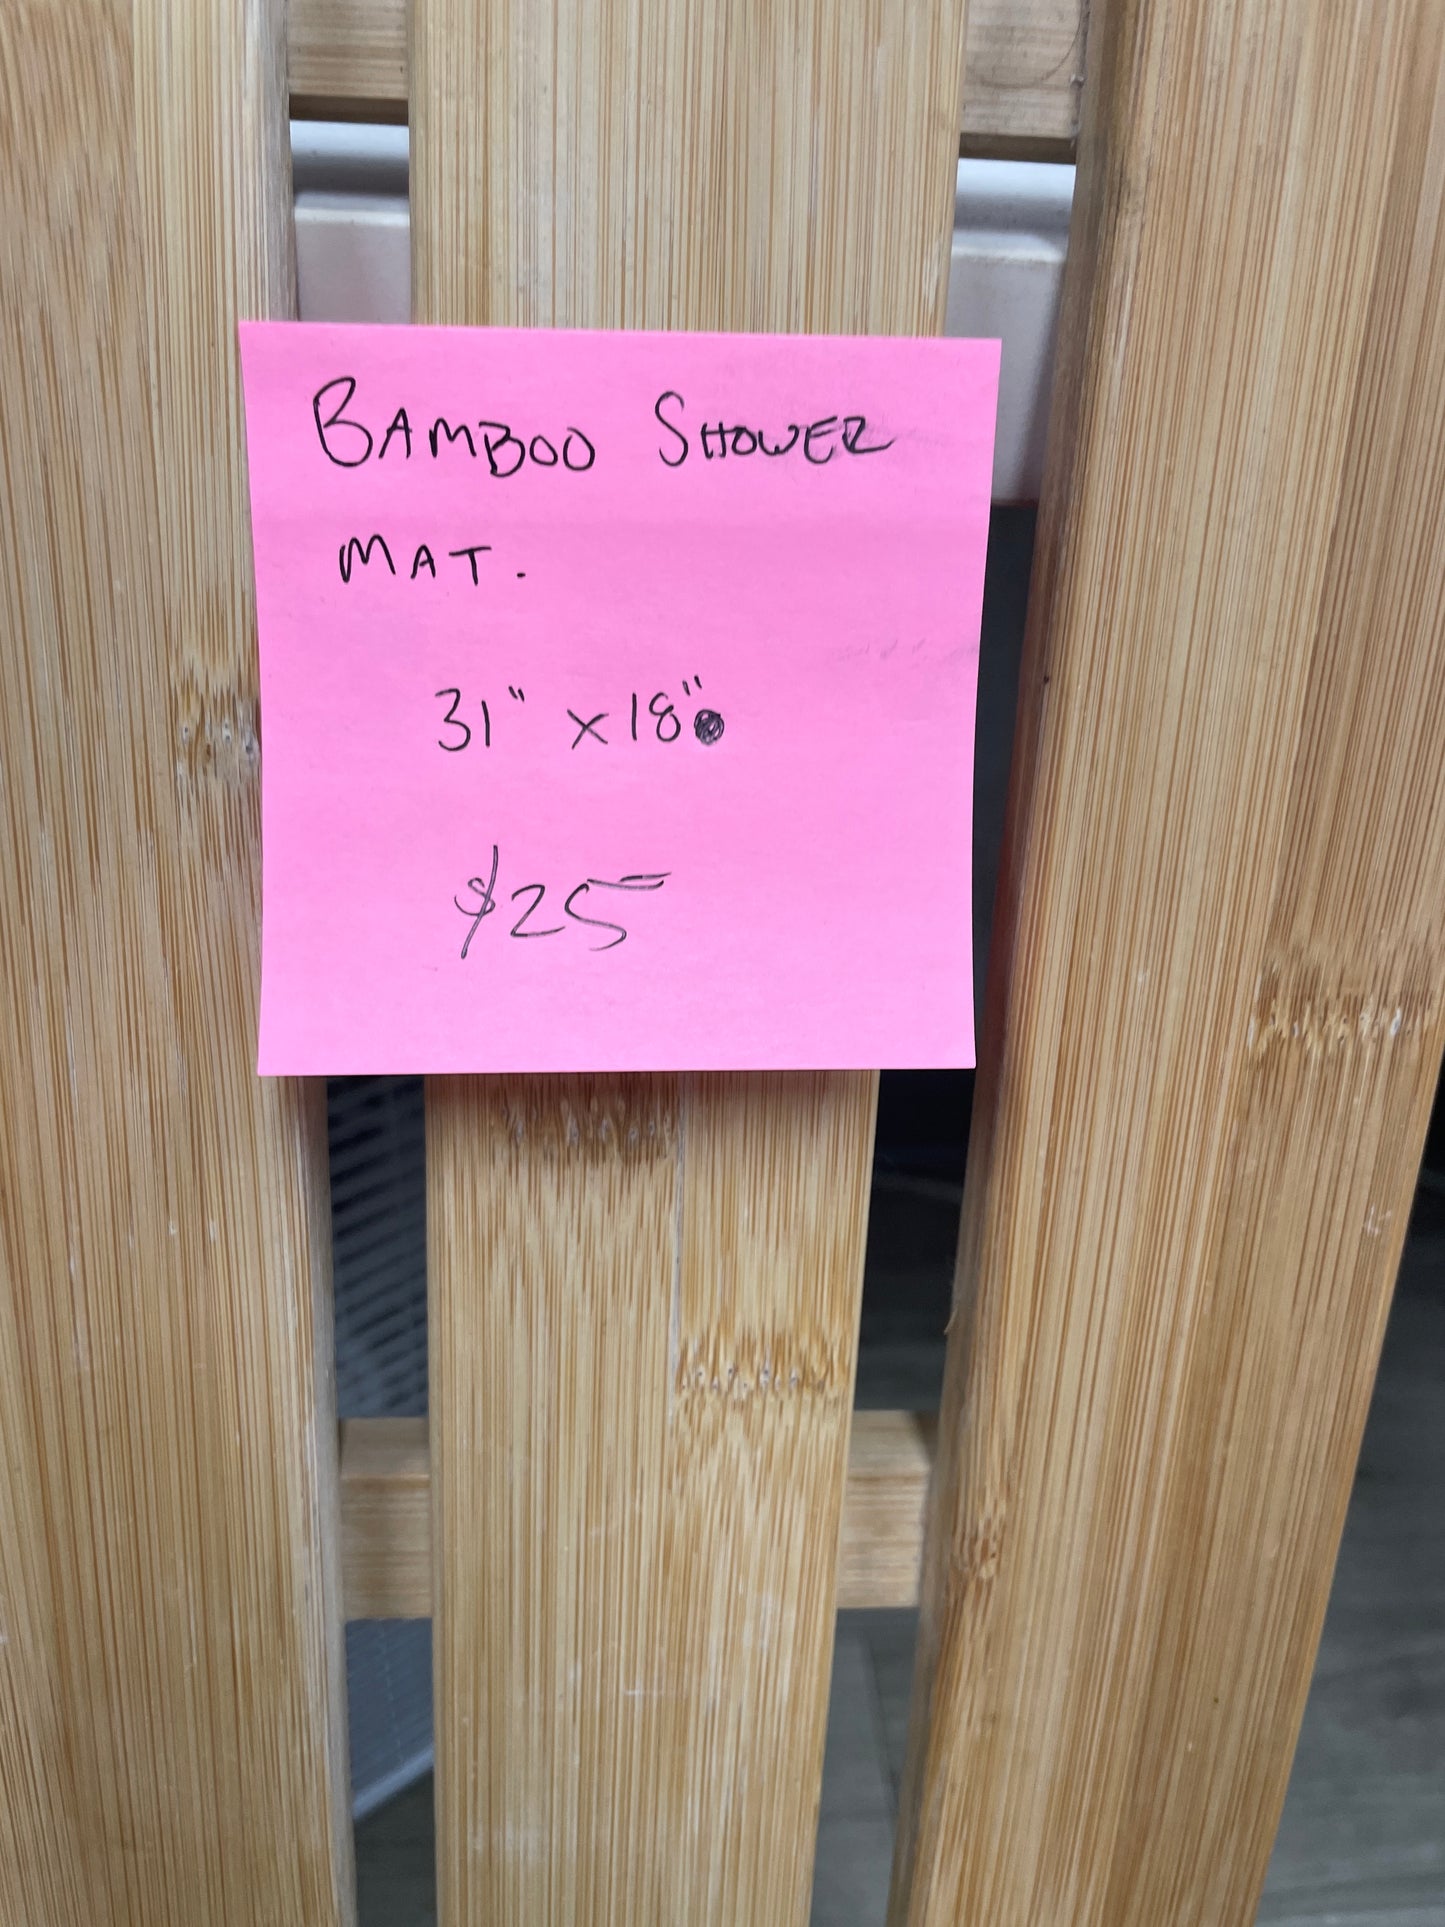 BAMBOO SHOWER
MAT.
31" x 18"
$25